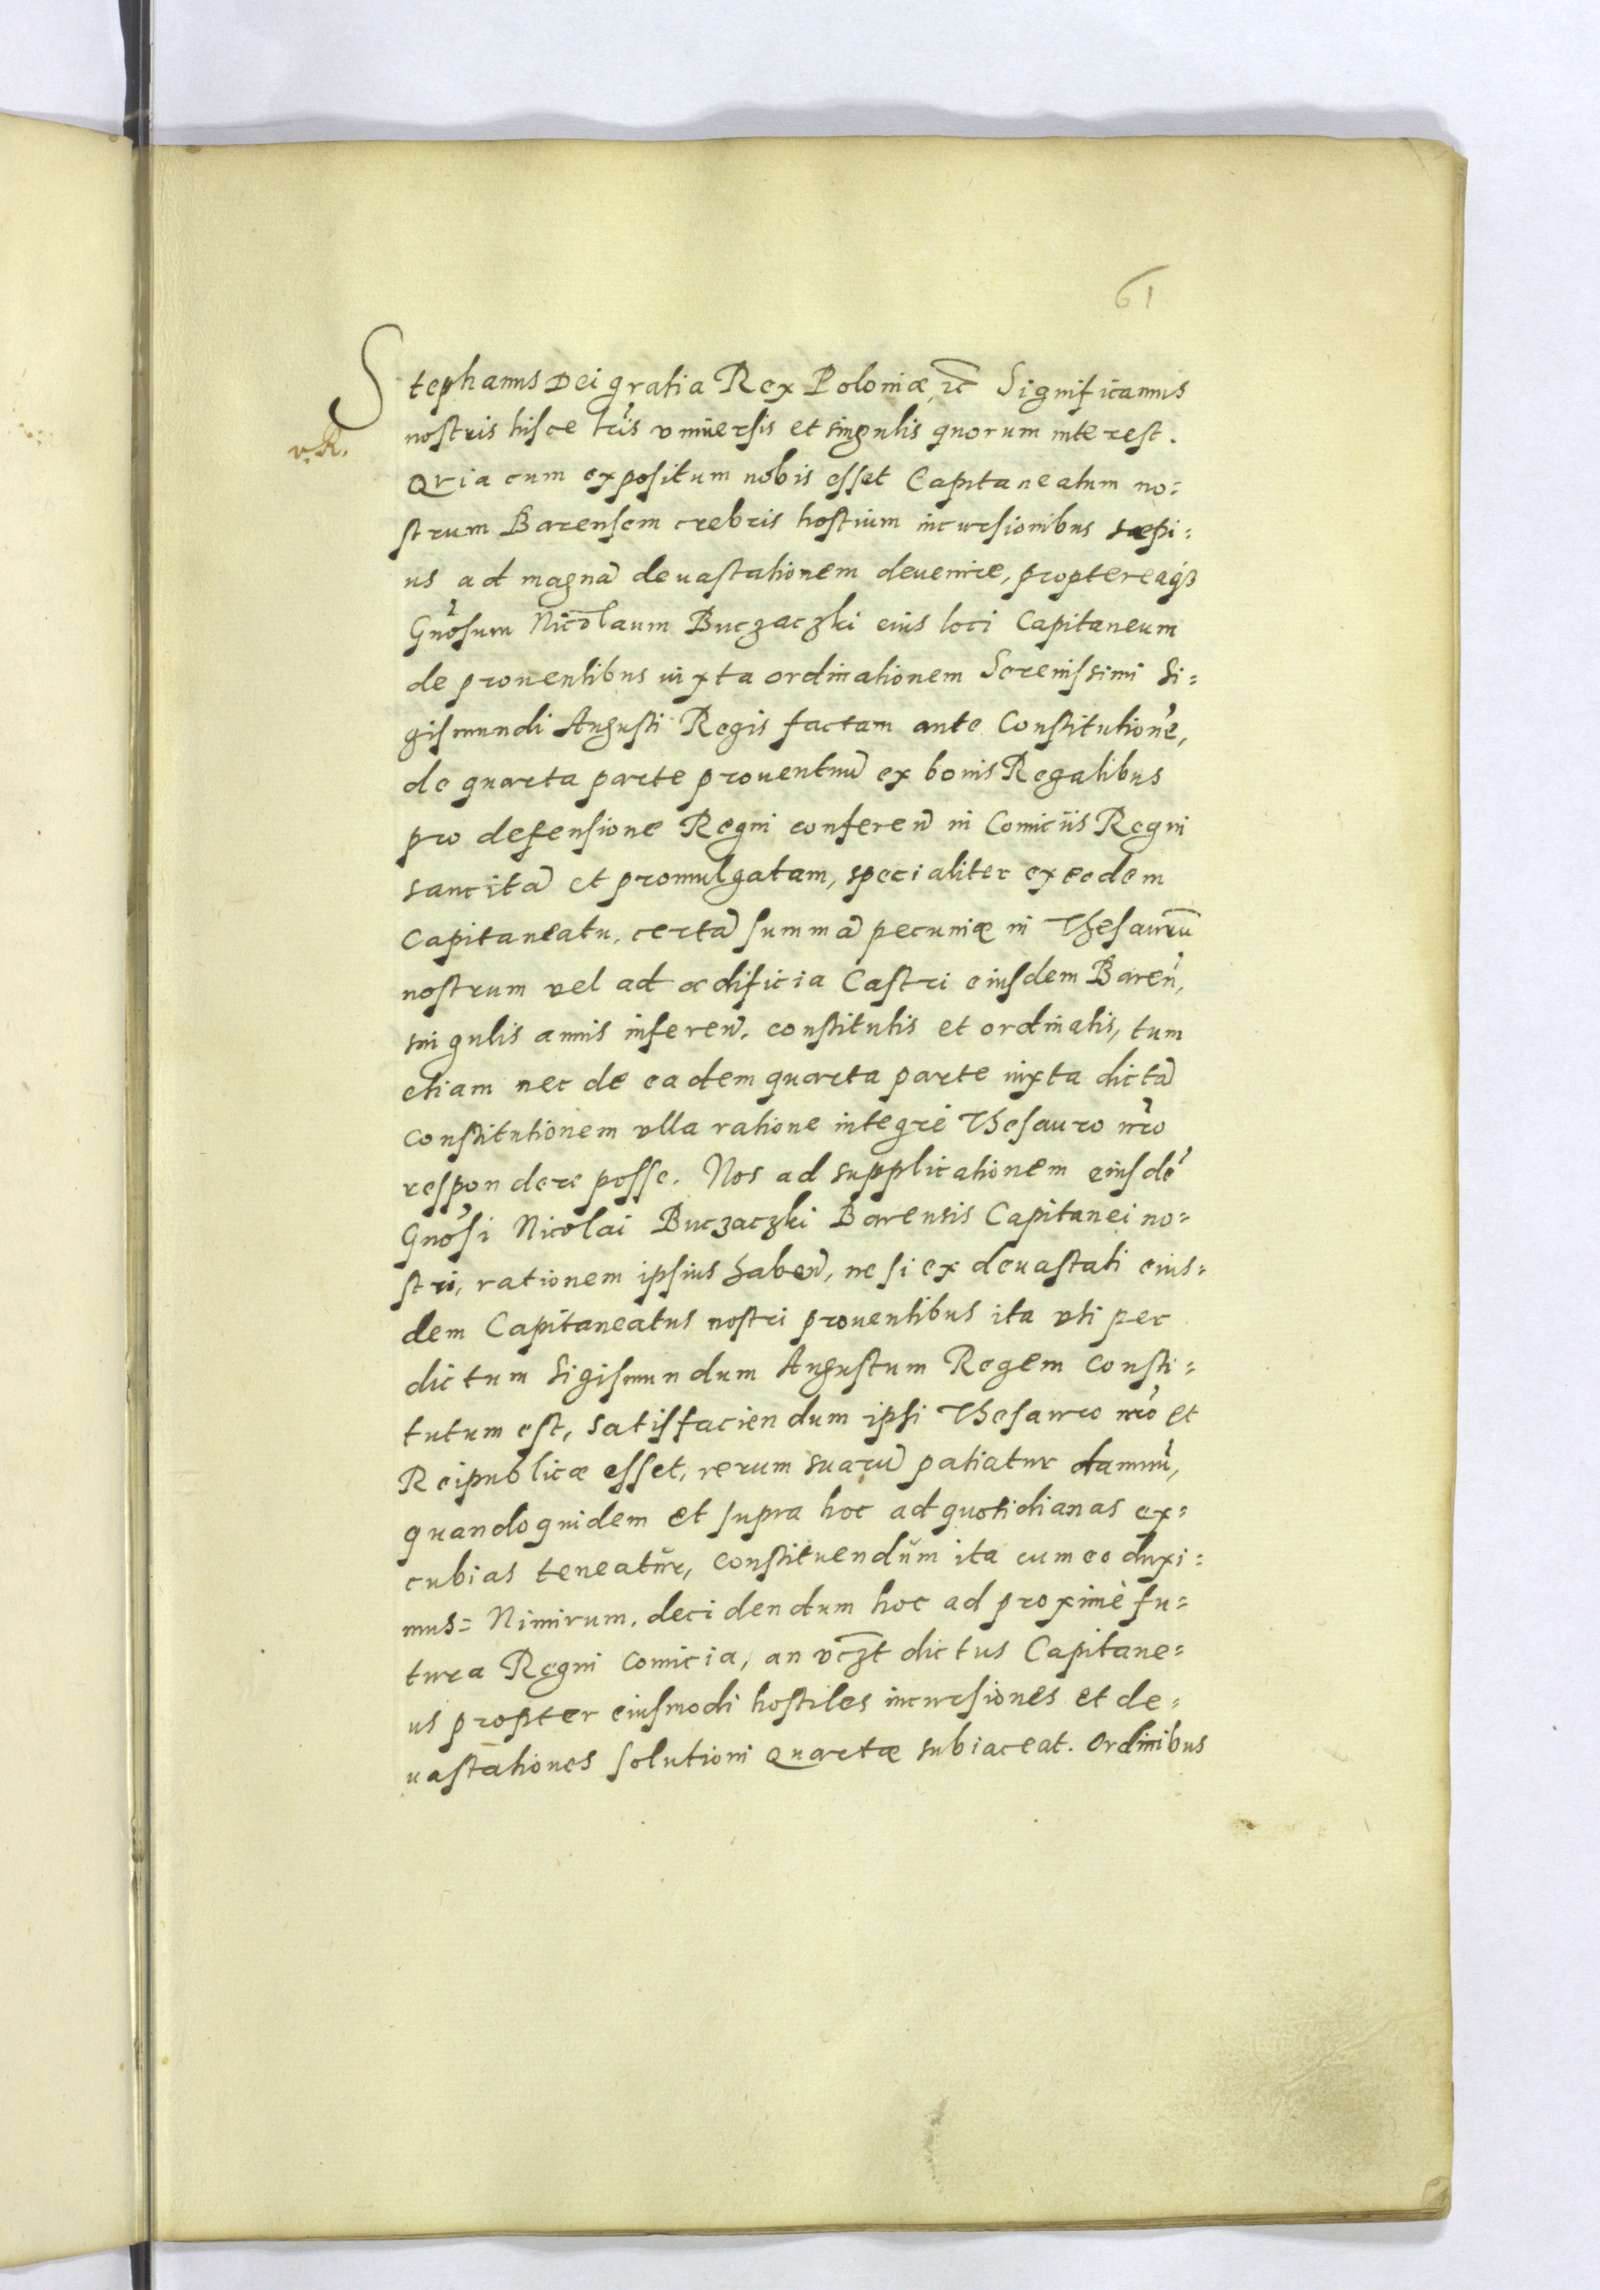 61
Stephanus Dei gratia Rex Poloniæ, &c Significamus
v. R.
nostris hisce lr̃is vniuersis et singulis quorum interest.
Qvia cum expositum nobis esset Capitaneatum no=
strum Barensem crebris hostium incursionibus sæpi=
us ad magnã deuastationem deuenire, propterea qȝ
Gnõsum Nicõlaum Buczaczki eius loci Capitaneum
de prouentibus iuxta ordinationem Serenissimi Si=
gismundi Augusti Regis factam ante Constitutionẽ,
de quarta parte prouentuũ ex bonis Regalibus
pro defensione Regni conferen̄ in Comiciis Regni
sancitã et promulgatam, specialiter ex eodem
Capitaneatu, certã summã pecuniæ in Thesaurũ
nostrum vel ad ædificia Castri eiusdem Baren̄,
singulis annis inferen̄. constitutis et ordinatis, tum
etiam nec de eadem quarta parte iuxta dictã
constitutionem vlla ratione integrè Thesauro nr̃o
respondere posse. Nos ad supplicationem eiusdẽ
Gnõsi Nicolai Buczaczki Barensis Capitanei no=
stri, rationem ipsius haben̄, ne si ex deuastati eius=
dem Capitaneatus nostri prouentibus ita vti per
dictum Sigismundum Augustum Regem consti=
tutum est, satisfaciendum ipsi Thesauro nr̃o et
Reipublicæ esset, rerum suarũ patiatur damnũ,
quandoquidem et supra hoc ad quotidianas ex=
cubias teneatur, constituendum ita cum eo duxi=
mus= Nimirum. decidendum hoc ad proximè fu=
tura Regni Comicia, an vcz̃t dictus Capitane=
us propter eiusmodi hostiles incursiones et de=
uastationes solutioni Quartæ subiaceat. Ordinibus